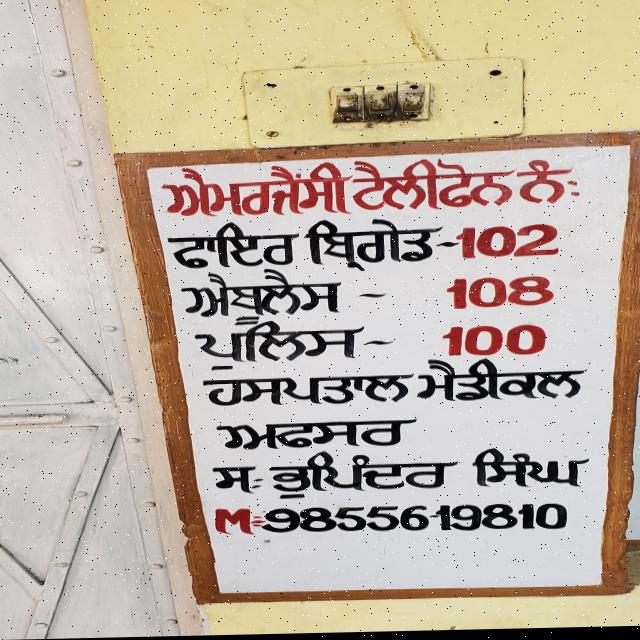 ਐਮਰਜੈਂਸੀ ਟੈਲੀਫੋਨ ਨੰ:
ਫਾਇਰ ਬ੍ਰਿਗੇਡ-102
ਐਬੂਲੈਸ - 108
ਪੁਲਿਸ- 100
ਹਸਪਤਾਲ ਮੈਡੀਕਲ
ਅਫਸਰ
ਸ: ਭੁਪਿੰਦਰ ਸਿੰਘ
M:-9855619810